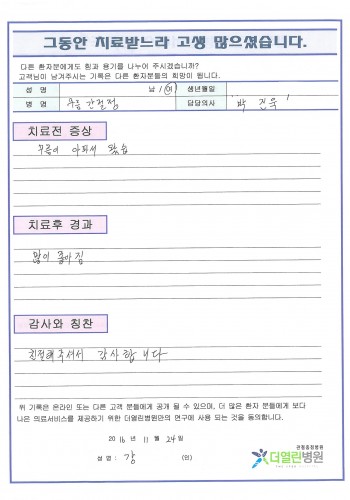 그동안 치료받느라 고생 많으셨습니다.
다른 환자분에게도 힘과 용기를 나누어 주시겠습니까?
고객님이 남겨주시는 기록은 다른 환자분들의 희망이 됩니다.
성 명 남 / 여 생년월일
병 명 무릎 관절정 담당의사 박 건욱
치료전 증상
무릎이 아파서 왔습
치료후 경과
많이 좋아짐
감사와 칭찬
친절해주셔서 감사합니다
위 기록은 온라인 또는 다른 고객 분들에게 공개 될 수 있으며, 더 많은 환자 분들에게 보다
나은 의료서비스를 제공하기 위한 더열린병원만의 연구에 사용 되는 것을 동의합니다.
2016 년 11 월 24 일
성 명 : 강 (인)
관절중점병원
더열린병원